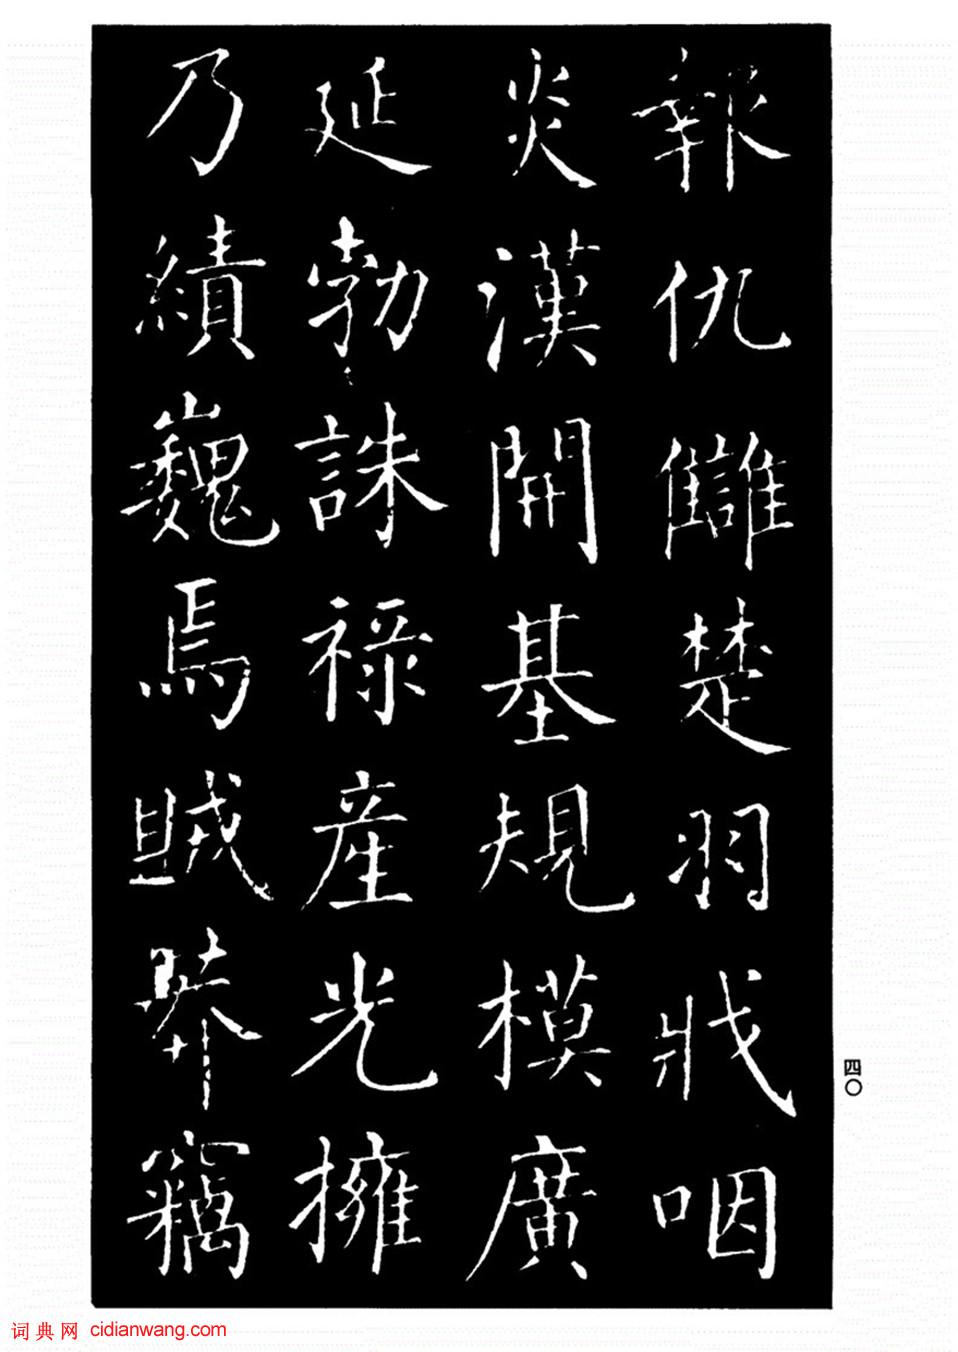 報仇讎楚羽戕咽
炎漢開基規模廣
延勃誅祿產光擁
乃績巍焉賊莽竊
四〇
词典网 cidianwang.com